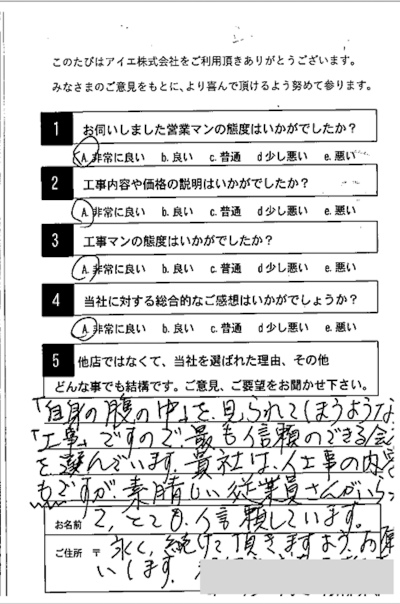 このたびはアイエ株式会社をご利用頂きありがとうございます。
みなさまのご意見をもとに、より喜んで頂けるよう努めて参ります。
1 お伺いしました営業マンの態度はいかがでしたか?
A.非常に良い b.良い c.普通 d少し悪い e.悪い
2 工事内容や価格の説明はいかがでしたか?
A.非常に良い b.良い c.普通 d少し悪い e.悪い
3 工事マンの態度はいかがでしたか?
A.非常に良い b.良い c.普通 d少し悪い e.悪い
4 当社に対する総合的なご感想はいかがでしょうか?
A.非常に良い b.良い c.普通 d少し悪い e.悪い
5 他店ではなくて、当社を選ばれた理由、その他
どんな事でも結構です。ご意見、ご要望をお聞かせ下さい。
「自身の腹の中」を、見られてしまうような
「工事」ですので、最も信頼のできる会
を選んでいます。貴社は、工事の内容
もですが、素晴しい従業員さんがいらっ
お名前 て、とても、信頼しています。
ご住所 〒 永く、続けて頂きますよう、お願
いします。